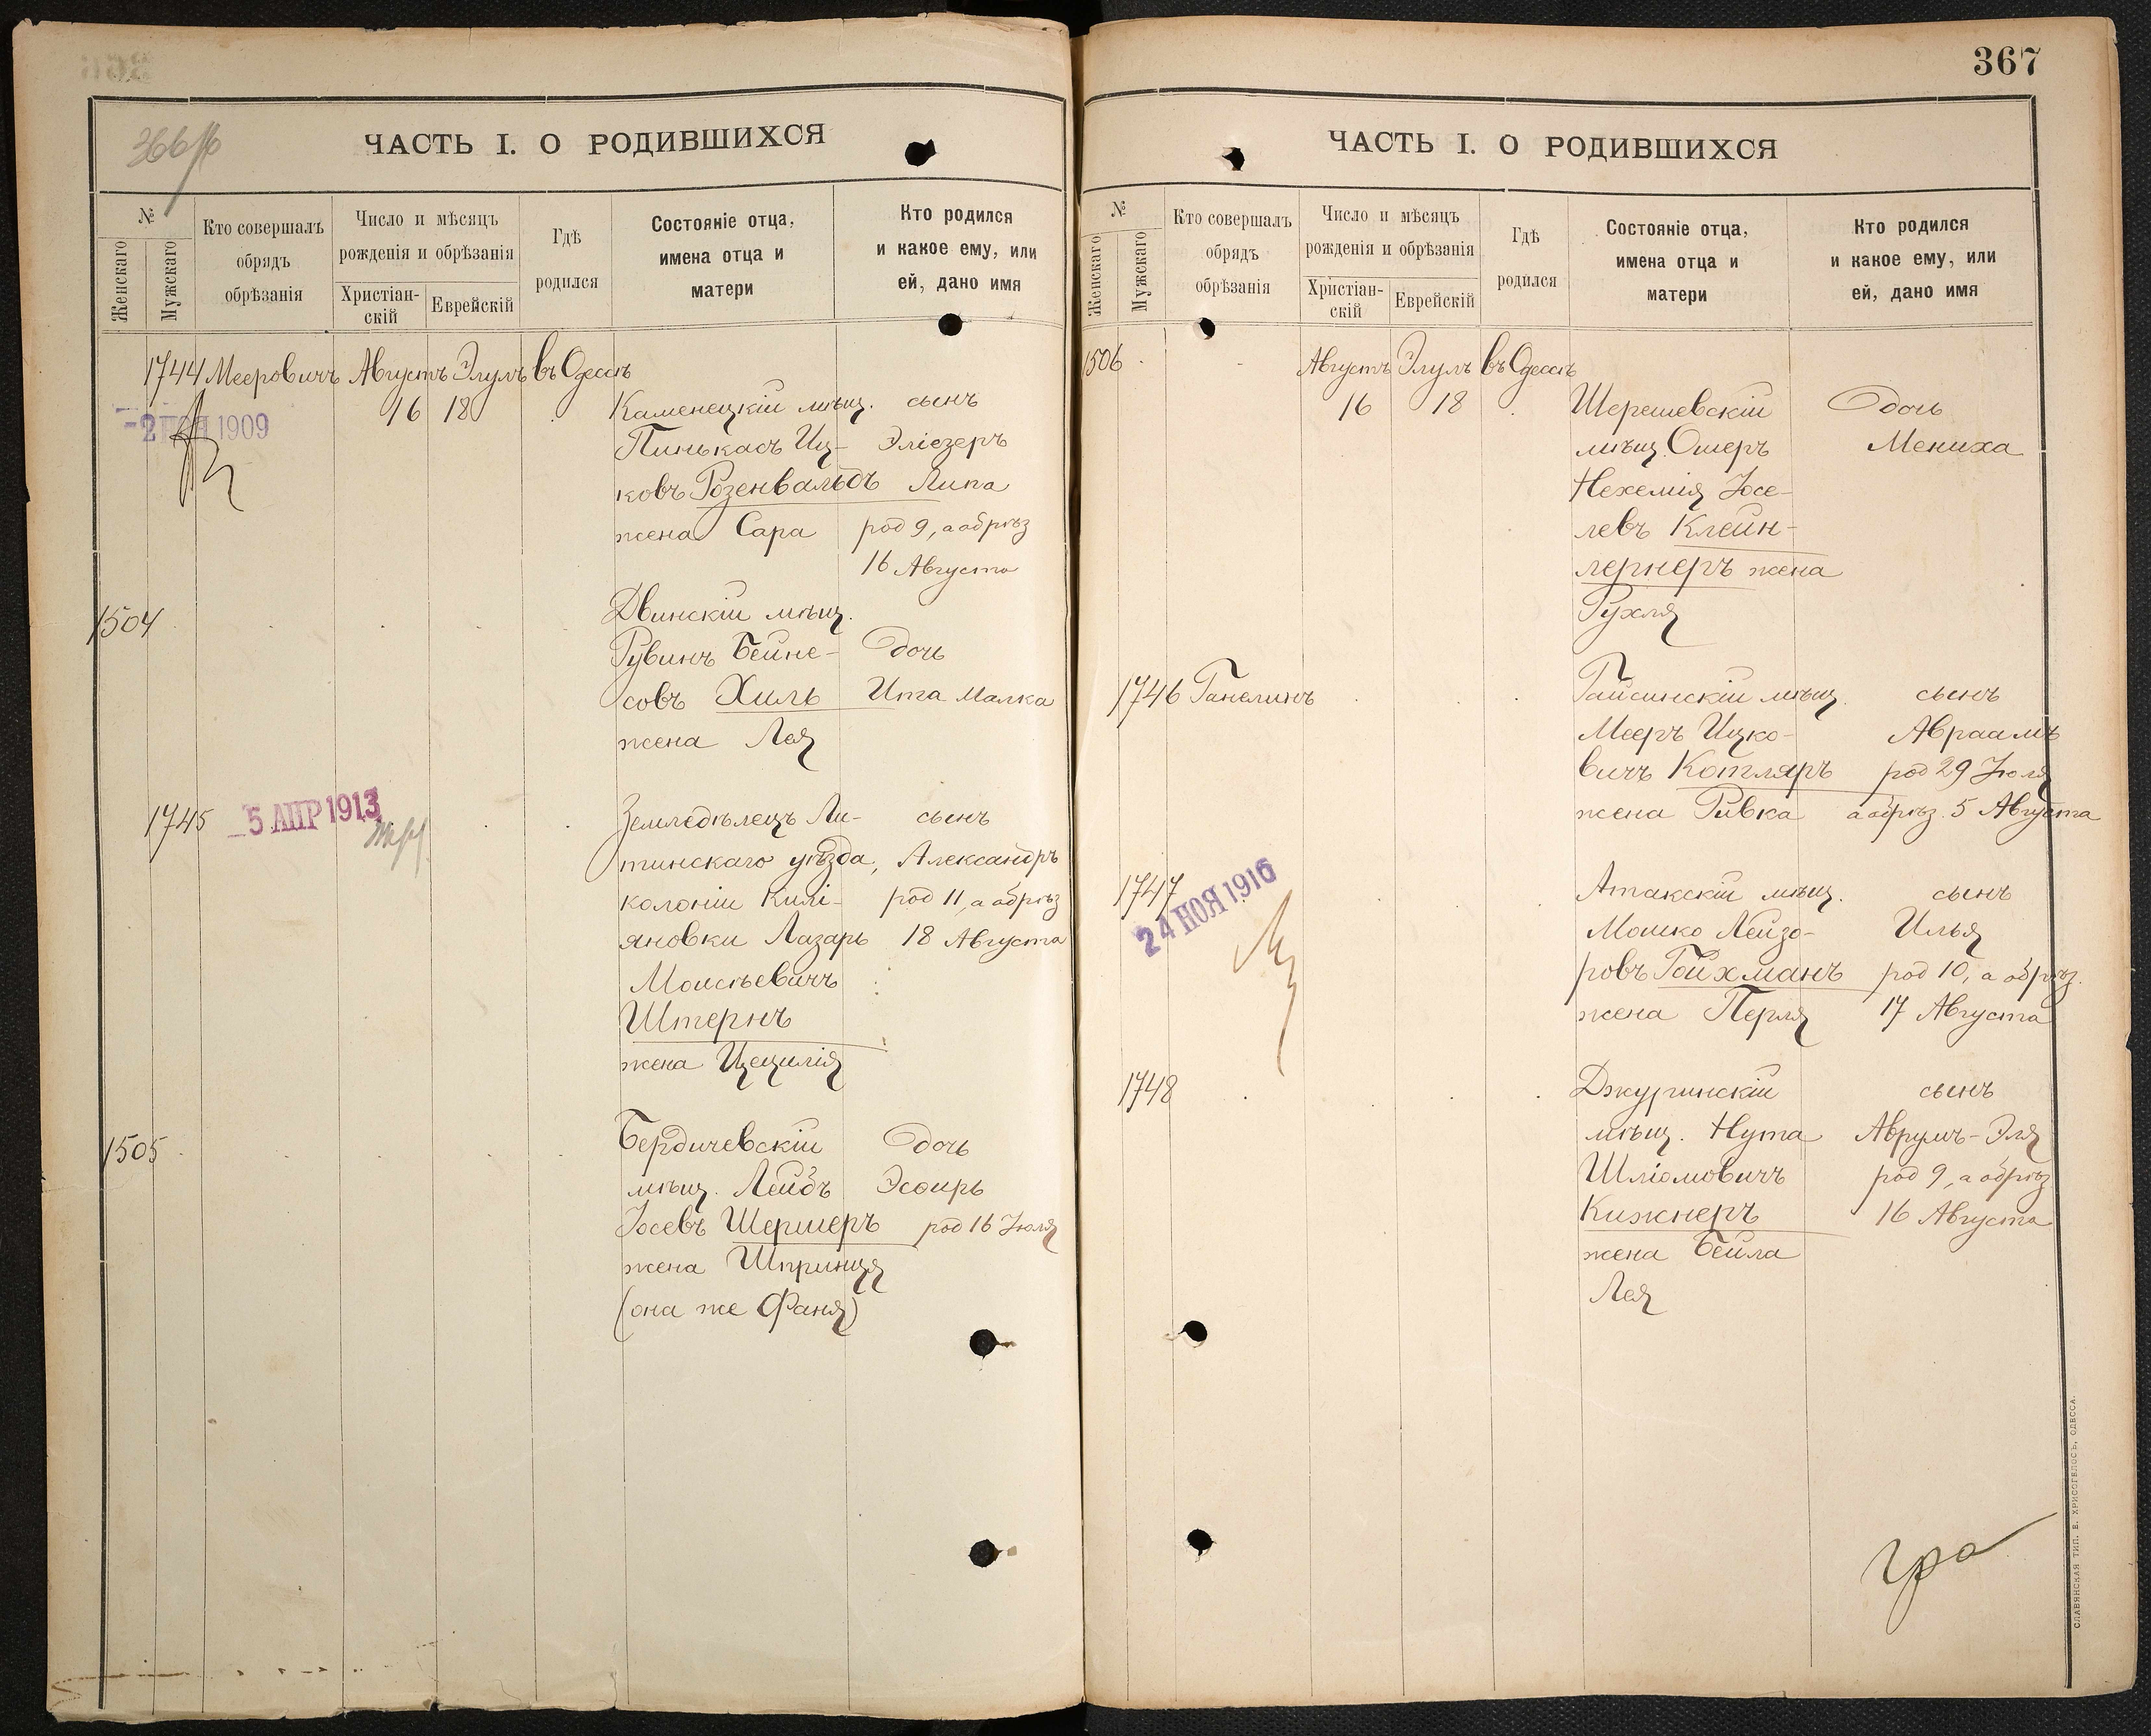 366/16
ЧАСТЬ I. О РОДИВШИХСЯ
№
Женскаго
Мужскаго
Кто совершалъ
обрядъ
обрѣзанія
Число и мѣсяцъ
рожденія и обрѣзанія
Христіан-
скій
Еврейскій
Гдѣ
родился
Состояніе отца,
имена отца и
матери
Кто родился
и какое ему, или
ей, дано имя
1744 Мееровичъ Августъ Элулъ въ Одессѣ
16 18 Каменецкій мѣщ. сынъ
-2 НОЯ 1909
Пинькасъ Иц- Эліезеръ
ковъ Розенвальдъ Липа
жена Сара род 9, а обрѣз
16 Августа
1504 Двинскій мѣщ.
Рувинъ Бейне- дочь
совъ Хиль Ита Малка
жена Лея
1745 5 АПР 1913 Земледѣлецъ Ли- сынъ
тинскаго уѣзда, Александръ
колоніи Килі- род 11, а обрѣз
яновки Лазарь 18 Августа
Моисѣевичъ
Штернъ
жена Цецилія
1505 Бердичевскій дочь
мѣщ. Лейбъ Эсѳирь
Іосевъ Шермеръ род 16 Іюля
жена Шпринця
(она же Фаня)
367
ЧАСТЬ I. О РОДИВШИХСЯ
№
Женскаго
Мужскаго
Кто совершалъ
обрядъ
обрѣзанія
Число и мѣсяцъ
рожденія и обрѣзанія
Христіан-
скій
Еврейскій
Гдѣ
родился
Состояніе отца,
имена отца и
матери
Кто родился
и какое ему, или
ей, дано имя
1506 Августъ Элулъ въ Одессѣ
16 18 Шерешевскій дочь
мѣщ. Ошеръ Мениха
Нехемія Іосе-
левъ Клейн-
лернеръ жена
Рухля
1746 Ганелинъ Гайсинскій мѣщ. сынъ
Мееръ Ицко- Авраамъ
вичъ Котляръ род 29 Іюля
жена Ривка а обрѣз. 5 Августа
1747 Атакскій мѣщ. сынъ
24 НОЯ 1916
Мошко Лейзо- Илья
ровъ Гойхманъ род 10, а обрѣз.
жена Перля 17 Августа
1748 Джуринскій сынъ
мѣщ. Нута Аврумъ-Эля
Шліомовичъ род 9, а обрѣз
Кижнеръ 16 Августа
жена Бейла
Лея
СЛАВЯНСКАЯ ТИП. Е. ХРИСОГЕЛОСЪ, ОДЕССА.